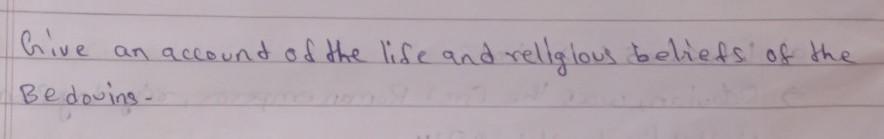 Give an accound of the life and rellglous beliefs of the
Bedouins-